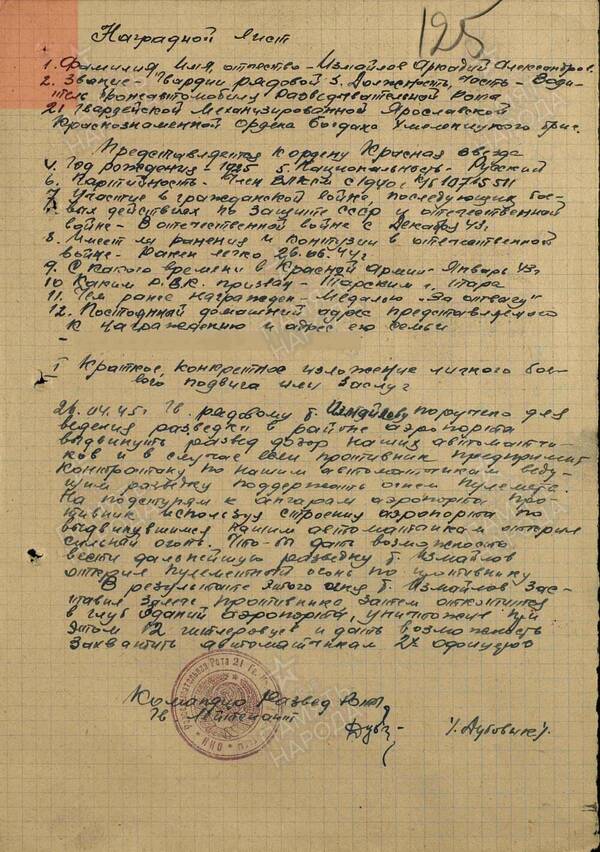 125
Наградной лист
1. Фамилия, Имя, отчество - Измайлов Аркадий Александров.
2. Звание - Гвардии рядовой 3. Должность, часть - Води-
тель бронеавтомобиля Разведывательной Рота
21 Гвардейской Механизированной Ярославской
Краснознаменной Ордена Богдана Хмельницкого бриг.
Представляется к ордену Красная звезда
4. Год рождения - 1925 5. Национальность - Русский
6. Партийность - Член ВЛКСМ с 1940г.
7. Участие в гражданской войне, последующих бое-
вых действиях по защите СССР и отечественной
войне - В отечественной войне с Декабря 43г.
8. Имеет ли ранения и контузии в отечественной
войне - Ранен легко 26.06.44г
9. С какого времени в Красной Армии - Январь 43г
10 Каким Р.В.К. призван - Тарским г. Тара
11. Чем ранее награжден - Медалью "За отвагу"
12. Постоянный домашний адрес представляемого
к награждению и адрес его семьи
-
I Краткое, конкретное изложение личного бое-
вого подвига или заслуг
26.04.45г Гв. рядовому т. Измайлову поручено для
ведения разведки в районе аэропорта
выдвинуть развед дозор наших автоматчи-
ков и в случае если противник предпримит
контратаку по нашим автоматчикам веду-
щим разведку поддержать огнем пулемета.
На подступях к ангарам аэропорта про-
тивник используя строения аэропорта по
выдвинувшимся нашим автоматчикам открыл
сильный огонь. Что-бы дать возможность
вести дальнейшую разведку т. Измайлов
открыл пулеметный огонь по противнику
В результате этого огня т. Измайлов зас-
тавил залечь противника затем откатится
в глубь зданий аэропорта, уничтожив при
этом 12 гитлеровцев и дать возможность
захватить автоматчикам 2х офицеров
Командир Развед Роты
Гв Лейтенант
/Дубовик/.
ПАМЯТЬ НАРОДА